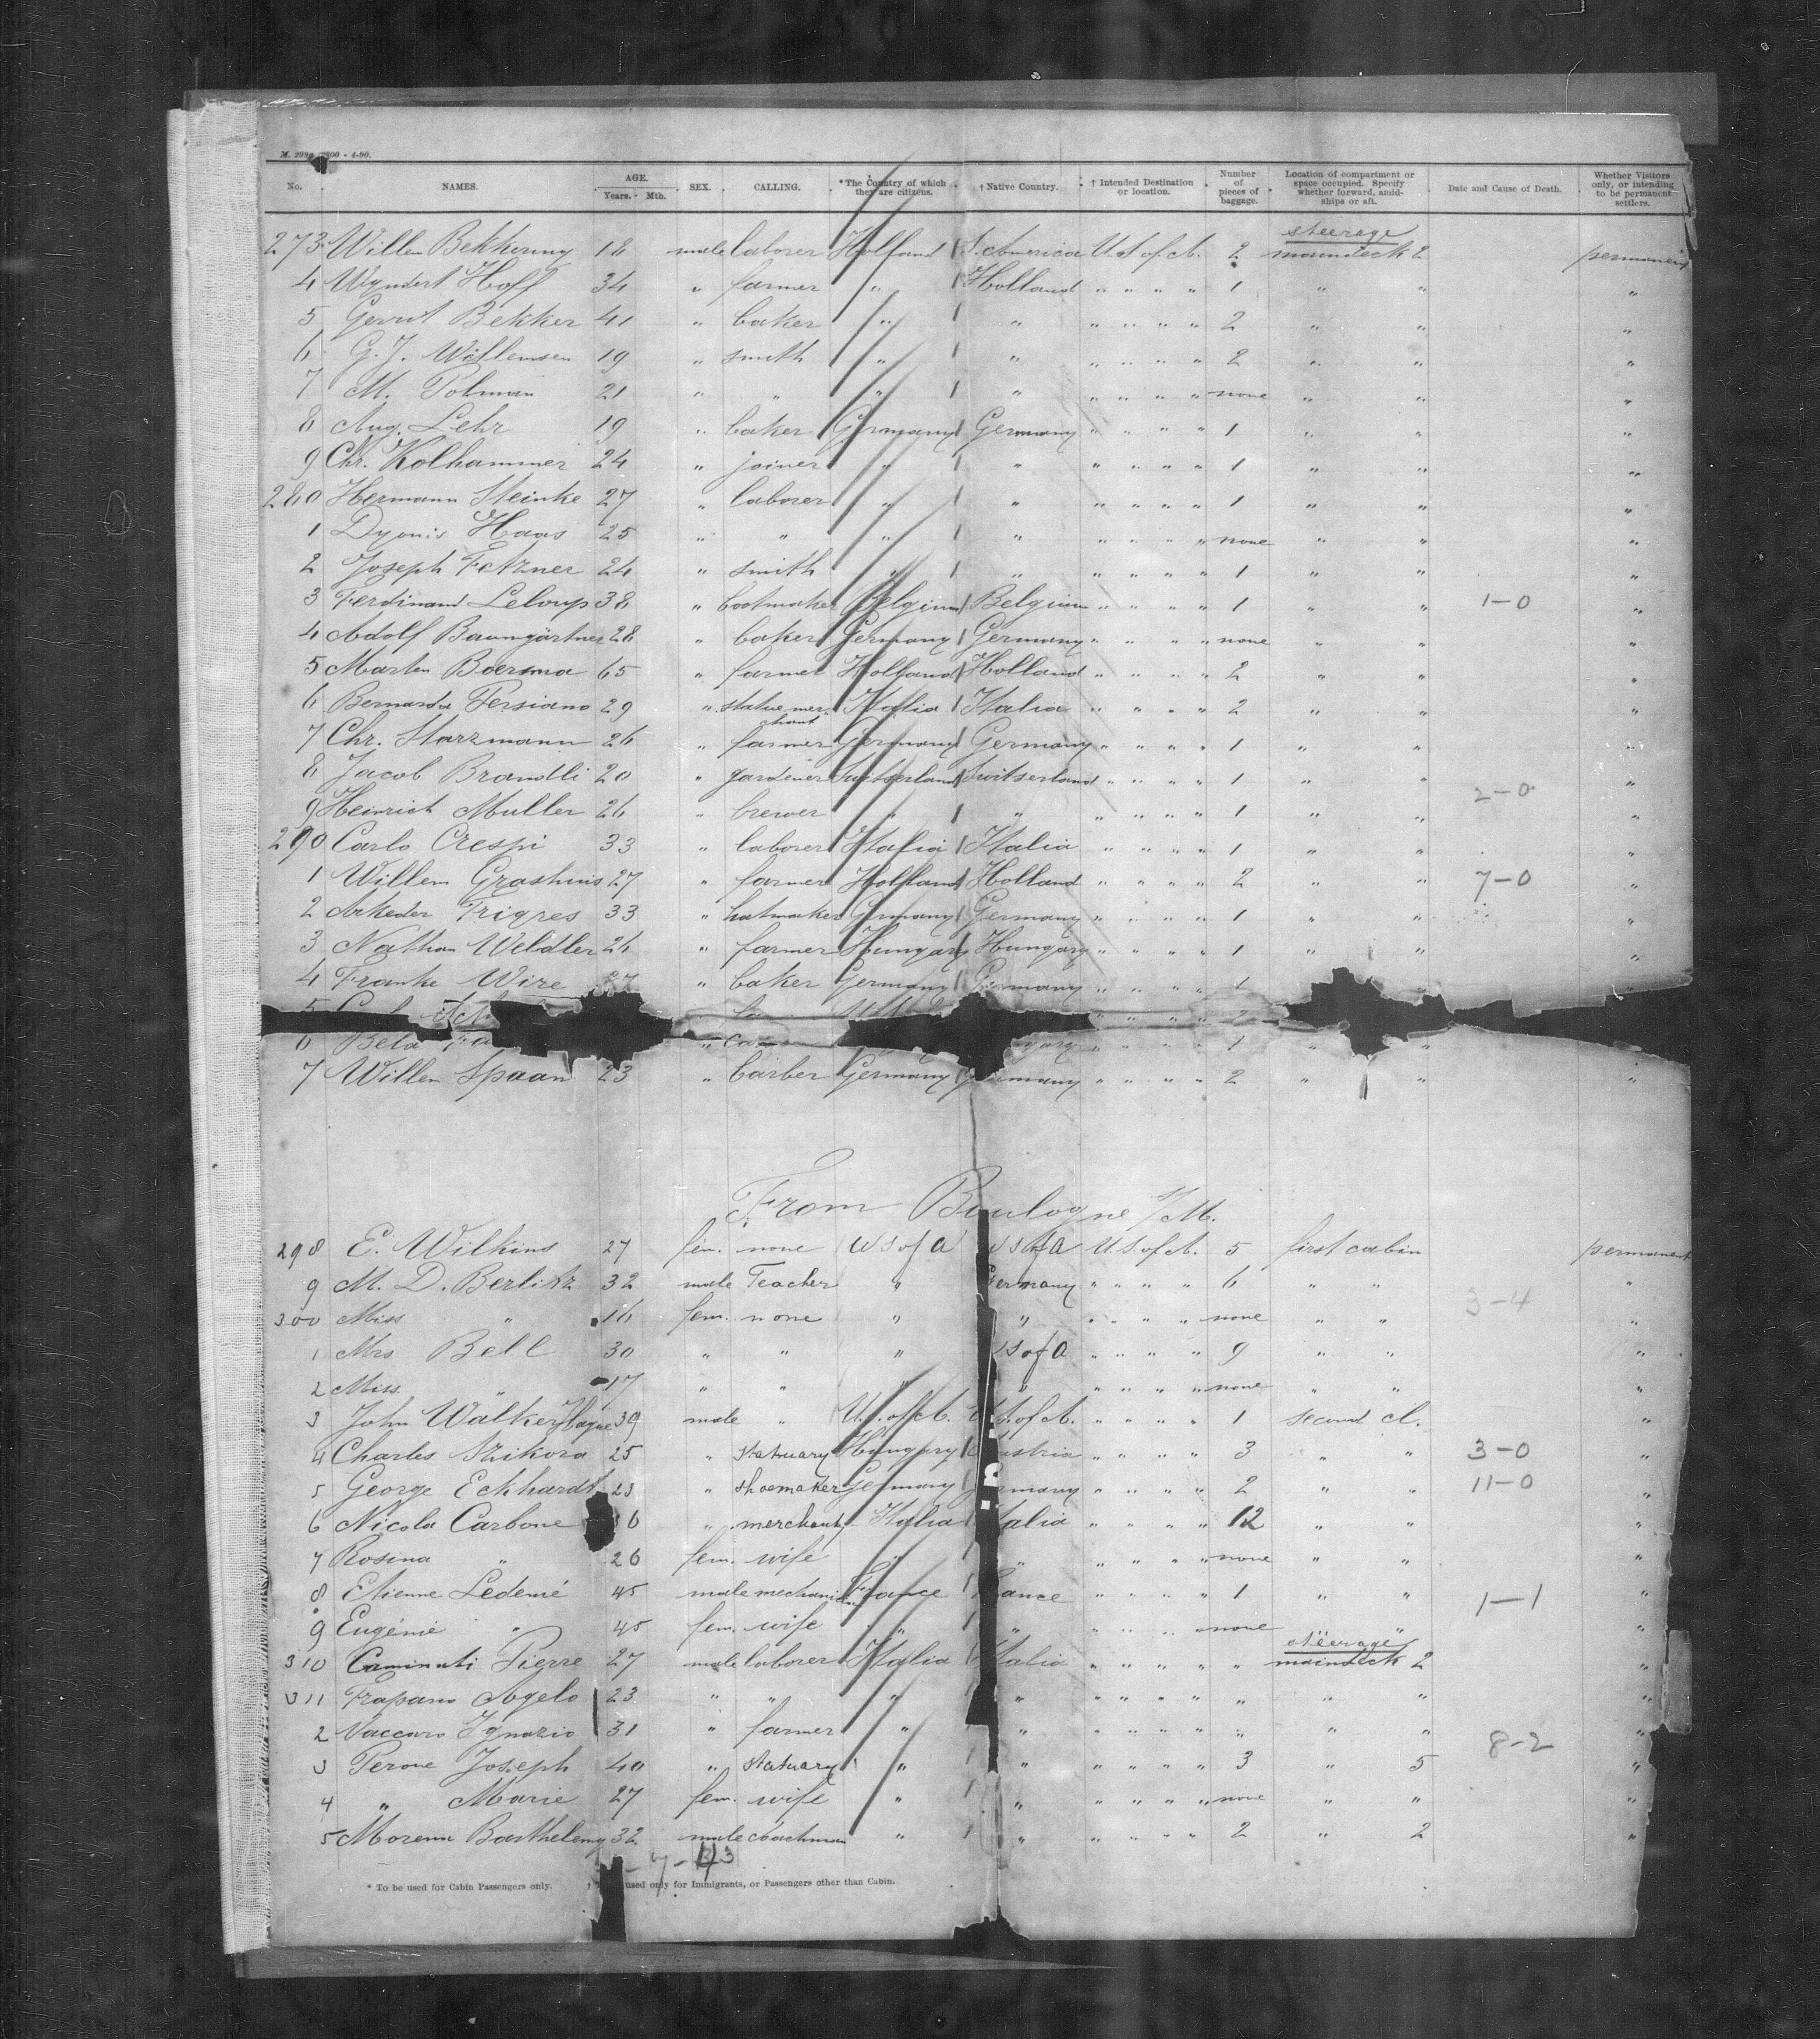 M. 299a 2800 - 4-90.
No. NAMES. AGE. Years. Mth. SEX. CALLING. *The Country of which they are citizens. † Native Country. † Intended Destination or location. Number of pieces of baggage. Location of compartment or space occupied. Specify whether forward, amidships or aft. Date and Cause of Death. Whether Visitors only, or intending to be permanent settlers.
steerage
273 Willem Bekkering 18 male laborer Holland S. America U. S. of A. 2 maindeck 2 permanent
4 Wyndert Hoff 34 " farmer " Holland " " " " 1 " " "
5 Gerrit Bekker 41 " baker " " " " " " 2 " " "
6 G. J. Willemsen 19 " smith " " " " " " 2 " " "
7 M. Tolman 21 " " " " " " " " none " " "
8 Aug. Lehr 19 " baker Germany Germany " " " " 1 " " "
9 Chr. Kolhammer 24 " joiner " " " " " " 1 " " "
280 Hermann Steinke 27 " laborer " " " " " " 1 " " "
1 Dyonis Haas 25 " " " " " " " " none " " "
2 Joseph Fetzner 24 " smith " " " " " " 1 " " "
3 Ferdinand Leloup 38 " bootmaker Belgium Belgium " " " " 1 " " 1-0 "
4 Adolf Baumgärtner 28 " baker Germany Germany " " " " none " " "
5 Marten Boersma 65 " farmer Holland Holland " " " " 2 " " "
6 Bernarda Persiano 29 " statue merchant Italia Italia " " " " 2 " " "
7 Chr. Starzmann 26 " farmer Germany Germany " " " " 1 " " "
8 Jacob Brandli 20 " gardener Switserland Switserland " " " " 1 " " "
2-0
9 Heinrich Muller 26 " brewer " " " " " " 1 " " "
290 Carlo Crespi 33 " laborer Italia Italia " " " " 1 " " "
1 Willem Grashuis 27 " farmer Holland Holland " " " " 2 " " 7-0 "
2 Arkeder Trigres 33 " hatmaker Germany Germany " " " " 1 " " "
3 Nathan Weldler 26 " farmer Hungary Hungary " " " " 1 " " "
4 Franke Wize 27 " baker Germany Germany " " " " 1 "
5 " " " " 2
6 Bela " " " " " 1 " " "
7 Willem Spaan 23 " barber Germany Germany " " " " 2 " " "
From Boulogne s/M.
298 E. Wilkins 27 fem. none U S of A U S of A U. S. of A. 5 first cabin permanent
9 M. D. Berlitz 32 male Teacher " Germany " " " " 6 " " "
3-4
300 Miss " 16 fem. none " " " " " " none " " "
1 Mrs Bell 30 " " " U S of A " " " " 9 " " "
2 Miss " 17 " " " " " " " " none " " "
3 John Walker Hague 39 male " U. S. of A. U. S. of A. " " " " 1 second cl. "
4 Charles Szikora 25 " statuary Hungary Austria " " " " 3 " " 3-0 "
5 George Eckhardt 23 " shoemaker Germany Germany " " " " 2 " " 11-0 "
6 Nicola Carbone 6 " merchant Italia Italia " " " " 12 " " "
7 Rosina " 26 fem. wife " " " " " " none " " "
8 Etienne Ledemé 45 male mechanician France France " " " " 1 " " 1-1 "
9 Eugénie " 45 fem. wife " " " " " " none " " "
steerage
310 Caminati Pierre 27 male laborer Italia Italia " " " " " maindeck 2 "
311 Trapano Angelo 23 " " " " " " " " " " " "
2 Vaccaro Ignazio 31 " farmer " " " " " " " " " "
8-2
3 Perone Joseph 40 " statuary " " " " " " 3 " 5 "
4 " Marie 27 fem. wife " " " " " " none " " "
5 Morenn Barthelemy 32 male coachman " " " " " " 2 " 2 "
* To be used for Cabin Passengers only. used only for Immigrants, or Passengers other than Cabin.